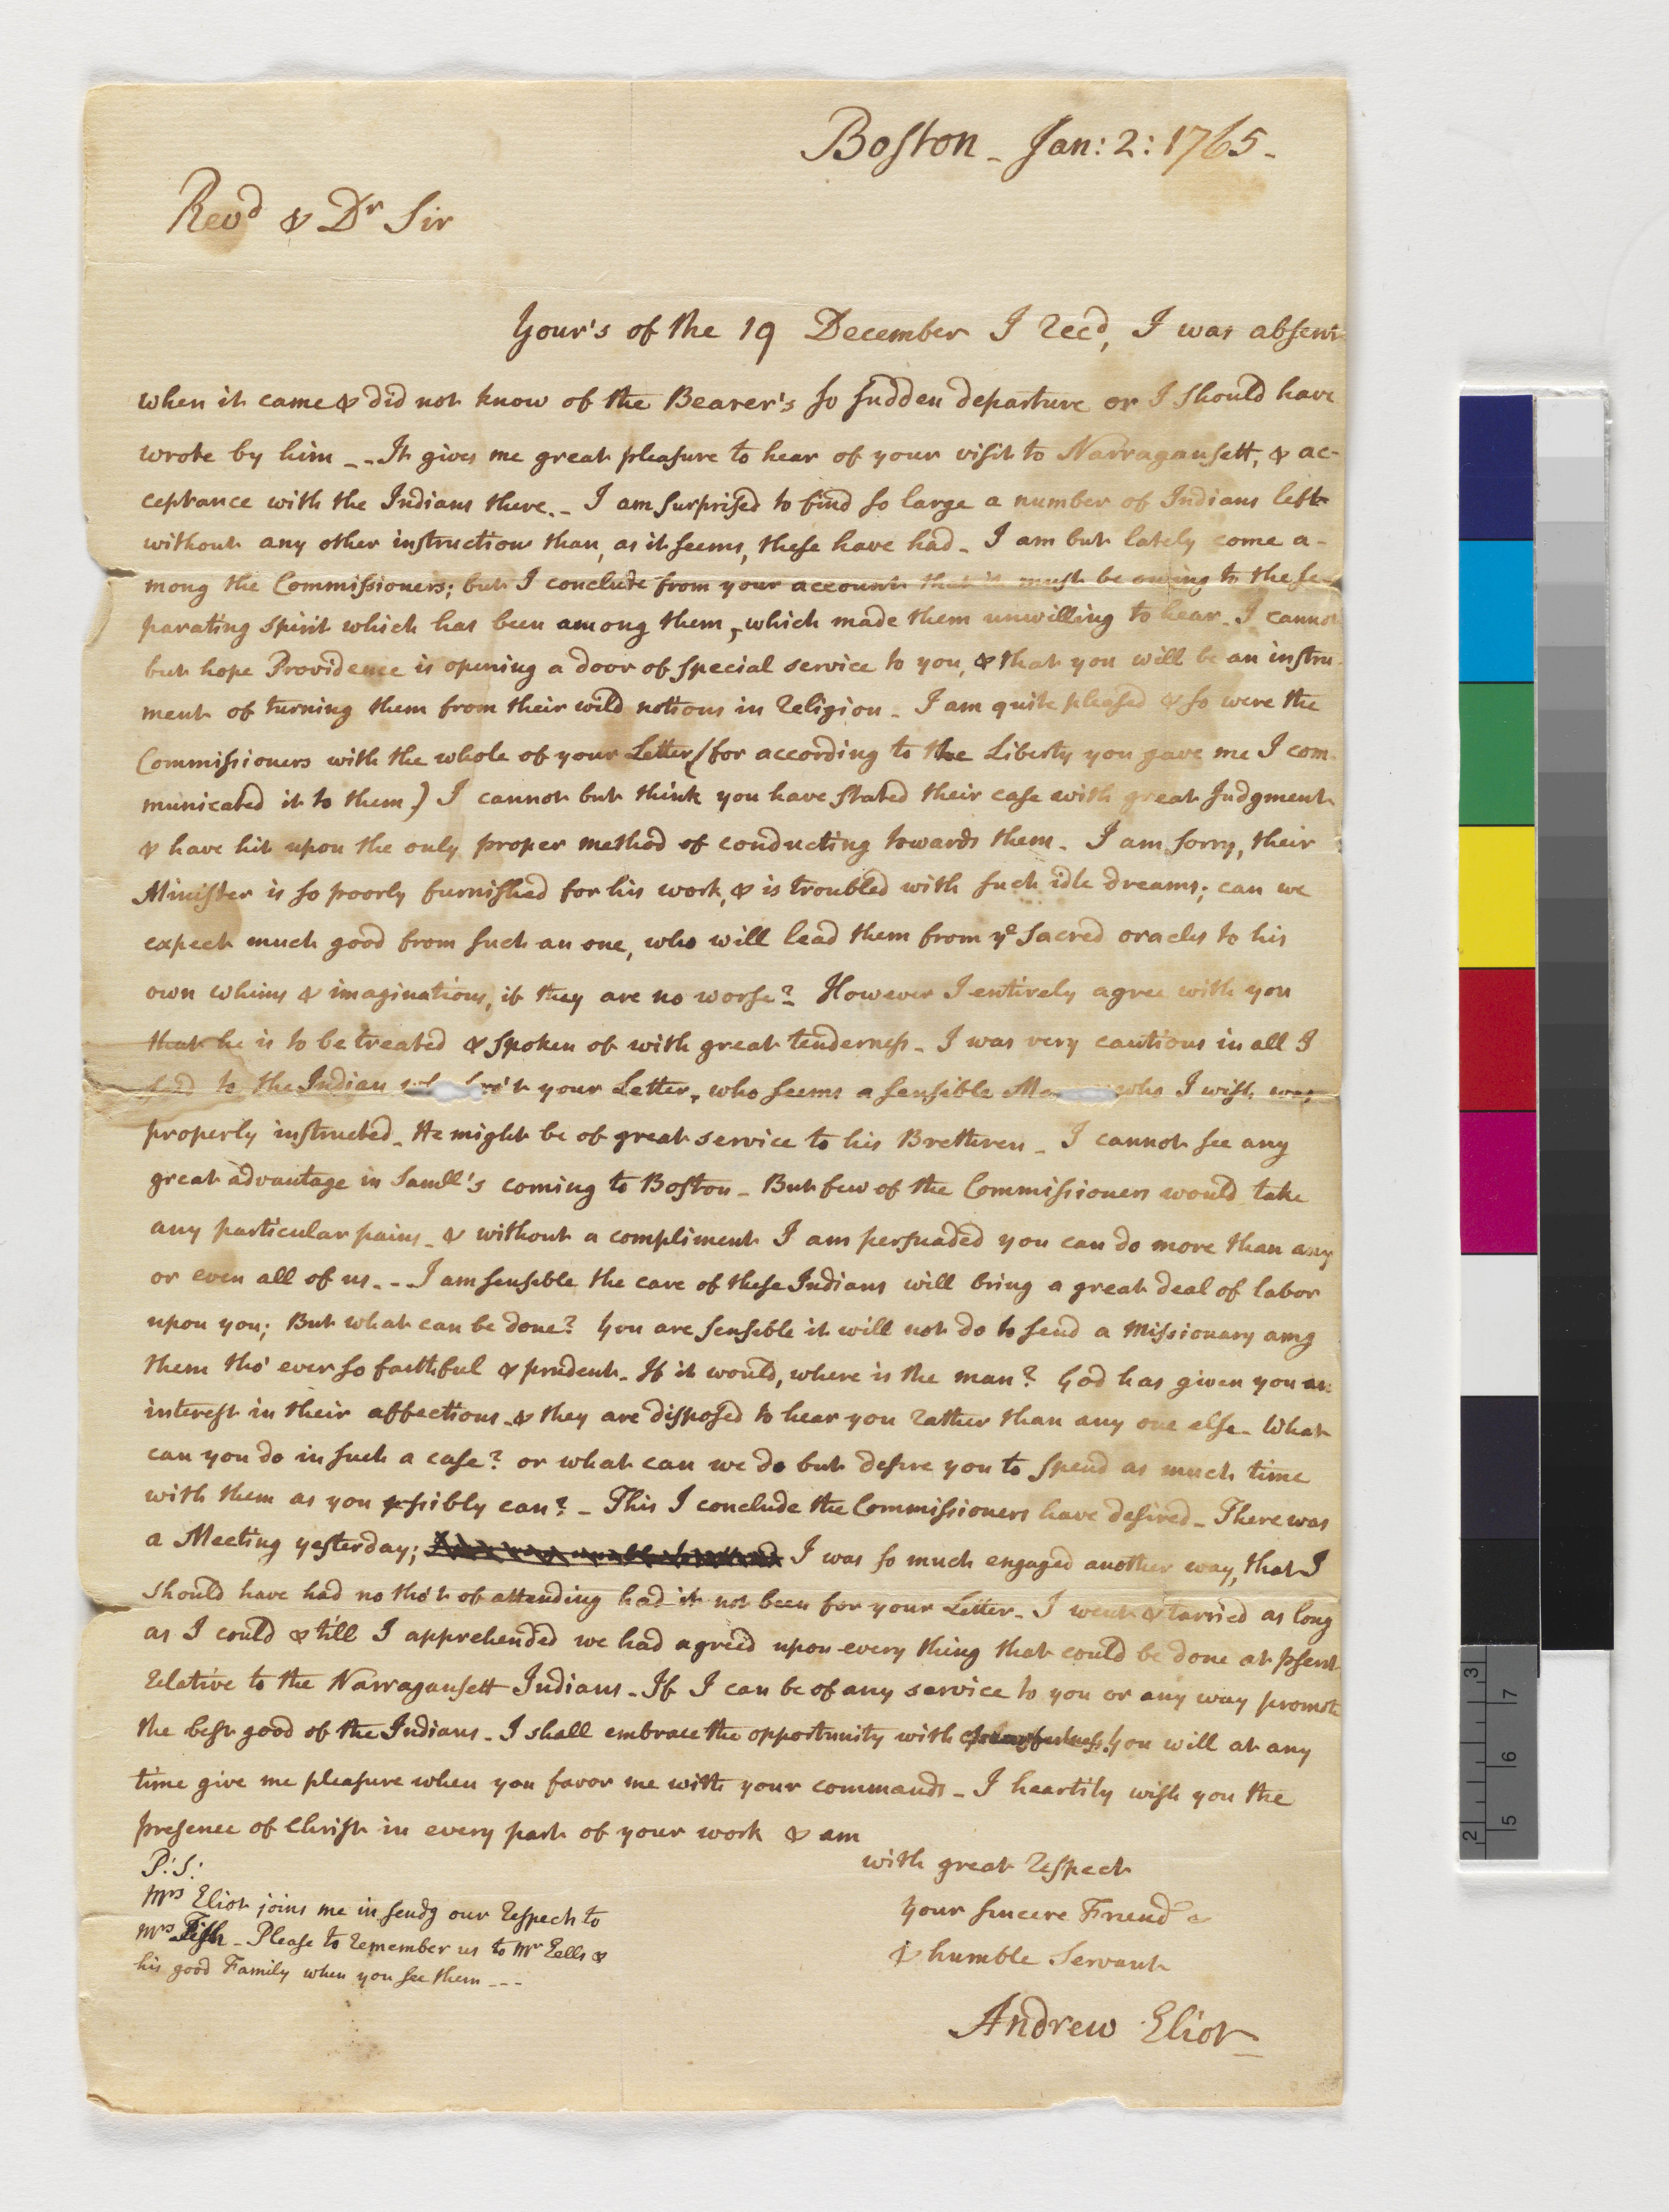 Boston - Jan: 2: 1765 -
Revd & Dr Sir
Your's of the 19 December I recd, I was absent
when it came & did not know of the Bearer's so sudden departure or I should have
wrote by him - - It gives me great pleasure to hear of your visit to Narragansett, & ac-
ceptance with the Indians there. - I am surprised to find so large a number of Indians left
without any other instruction than, as it seems, these have had - I am but lately come a-
mong the Commissioners; but I conclude from your account that it must be owing to the se-
parating spirit which has been among them, which made them unwilling to hear. I cannot
but hope Providence is opening a door of special service to you, & that you will be an instru-
ment of turning them from their wild notions in religion - I am quite pleased & so were the
Commissioners with the whole of your Letter (for according to the Liberty you gave me I com-
municated it to them.) I cannot but think you have stated their case with great Judgment
& have hit upon the only proper method of conducting towards them - I am sorry, their
Minister is so poorly furnished for his work, & is troubled with such idle dreams; can we
expect much good from such an one, who will lead them from ye sacred oracles to his
own whims & imaginations, if they are no worse? - However I entirely agree with you
that he is to be treated & spoken of with great tenderness - I was very cautious in all I
said to the Indian your Letter, who seems a sensible who I wish was
properly instructed - He might be of great service to his Brethren - I cannot see any
great advantage in Samll's coming to Boston - But few of the Commissioners would take
any particular pains - & without a compliment I am persuaded you can do more than any
or even all of us. - - I am sensible the care of these Indians will bring a great deal of labor
upon you; But what can be done? You are sensible it will not do to send a Missionary amg
them tho' ever so faithful & prudent. If it would, where is the man? God has given you an
interest in their affections - & they are disposed to hear you rather than any one else - What
can you do in such a case? or what can we do but desire you to spend as much time
with them as you possibly can? - This I conclude the Commissioners have desired - There was
a Meeting yesterday; I was so much engaged another way, that I
should have had no tho't of attending had it not been for your Letter - I went & tarried as long
as I could & till I apprehended we had agreed upon every thing that could be done at psent
relative to the Narragansett Indians - If I can be of any service to you or any way promote
the best good of the Indians - I shall embrace the opportunity with chearfulness. You will at any
time give me pleasure when you favor me with your commands - I heartily wish you the
presence of Christ in every part of your work & am
with great respect
your sincere Friend
& humble Servant
Andrew Eliot
P: S:
Mrs Eliot joins me in sendg our respects to
Mrs Fish - Please to remember us to Mr Eells &
his good Family when you see them - - -
2 3
5 6 7